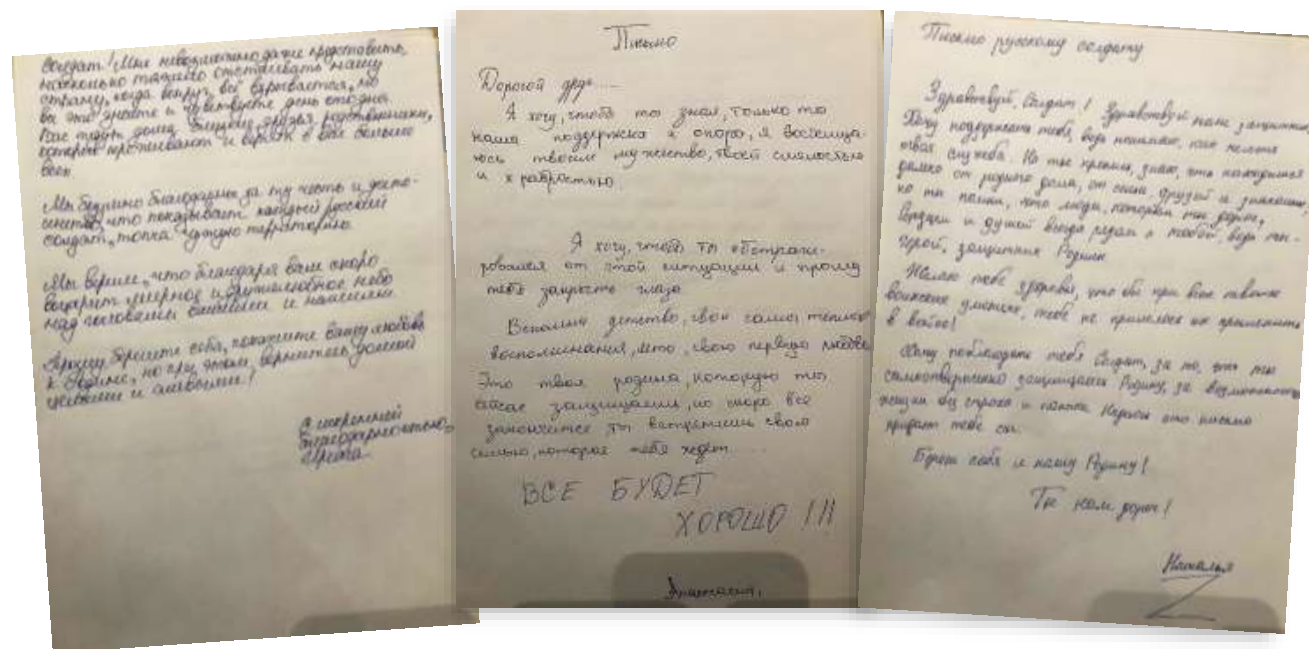 Солдат! Мне невозможно даже представить,
насколько тяжело отстаивать нашу
страну, когда вокруг всё взрывается, но
вы это знаете и чувствуете день ото дня.
Вас ждут дома близкие, друзья родственники,
которые проживают и верят в вас больше
всех.
Мы безумно благодарны за ту честь и досто-
инство, что показывает каждый русский
солдат, топча чужую территорию.
Мы верим, что благодаря вам скоро
воцарит мирное и дружелюбное небо
над головами вашими и нашими.
Прошу, берегите себя, покажите вашу любовь
к Родине, но при этом, вернитесь домой
живыми!
С искренней
благодарностью,
Письмо
Дорогой друг.....
Я хочу, чтобы ты знал, только ты
наша поддержка и опора, я восхища-
юсь твоим мужество, твоей смелостью
и храбростью.
Я хочу, чтобы ты абстраги-
ровался от этой ситуации и прошу
тебя закрыть глаза
Вспомни детство, свои самые теплые
воспоминания, лето, свою первую любовь
Это твоя родина, которую ты
сейчас защищаешь, но скоро все
закончится ты встретишь свою
семью, которая тебя ждет....
ВСЕ БУДЕТ
ХОРОШО !!!
Анастасия.
Письмо русскому солдату
Здравствуй, Солдат! Здравствуй наш защитник
Хочу поддержать тебя, ведь понимаю, как нелегка
твоя служба. Но ты крепись, знаю, что находишься
далеко от родного дома, от семьи, друзей и знакомых,
но ты помни, что люди, которым ты дорог,
сердцем и душой всегда рядом с тобой, ведь ты-
герой, защитник Родины.
Желаю тебе здоровья, что бы при всех твоих
воинских умениях, тебе не пришлось их применить
в войне!
Хочу поблагодарить тебя Солдат, за то, что ты
самоотверженно защищаешь Родину, за возможность
жить без страха и паники. Надеюсь это письмо
придаст тебе сил.
Береги себя и нашу Родину!
Ты нам дорог!
Наталья
Z